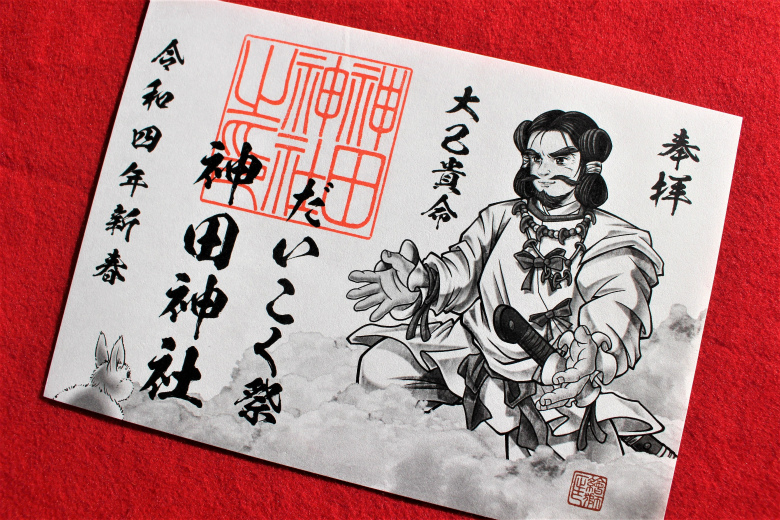 奉拝
大己貴命
だいこく祭
神田神社
令和四年新春
神田
神社
之印